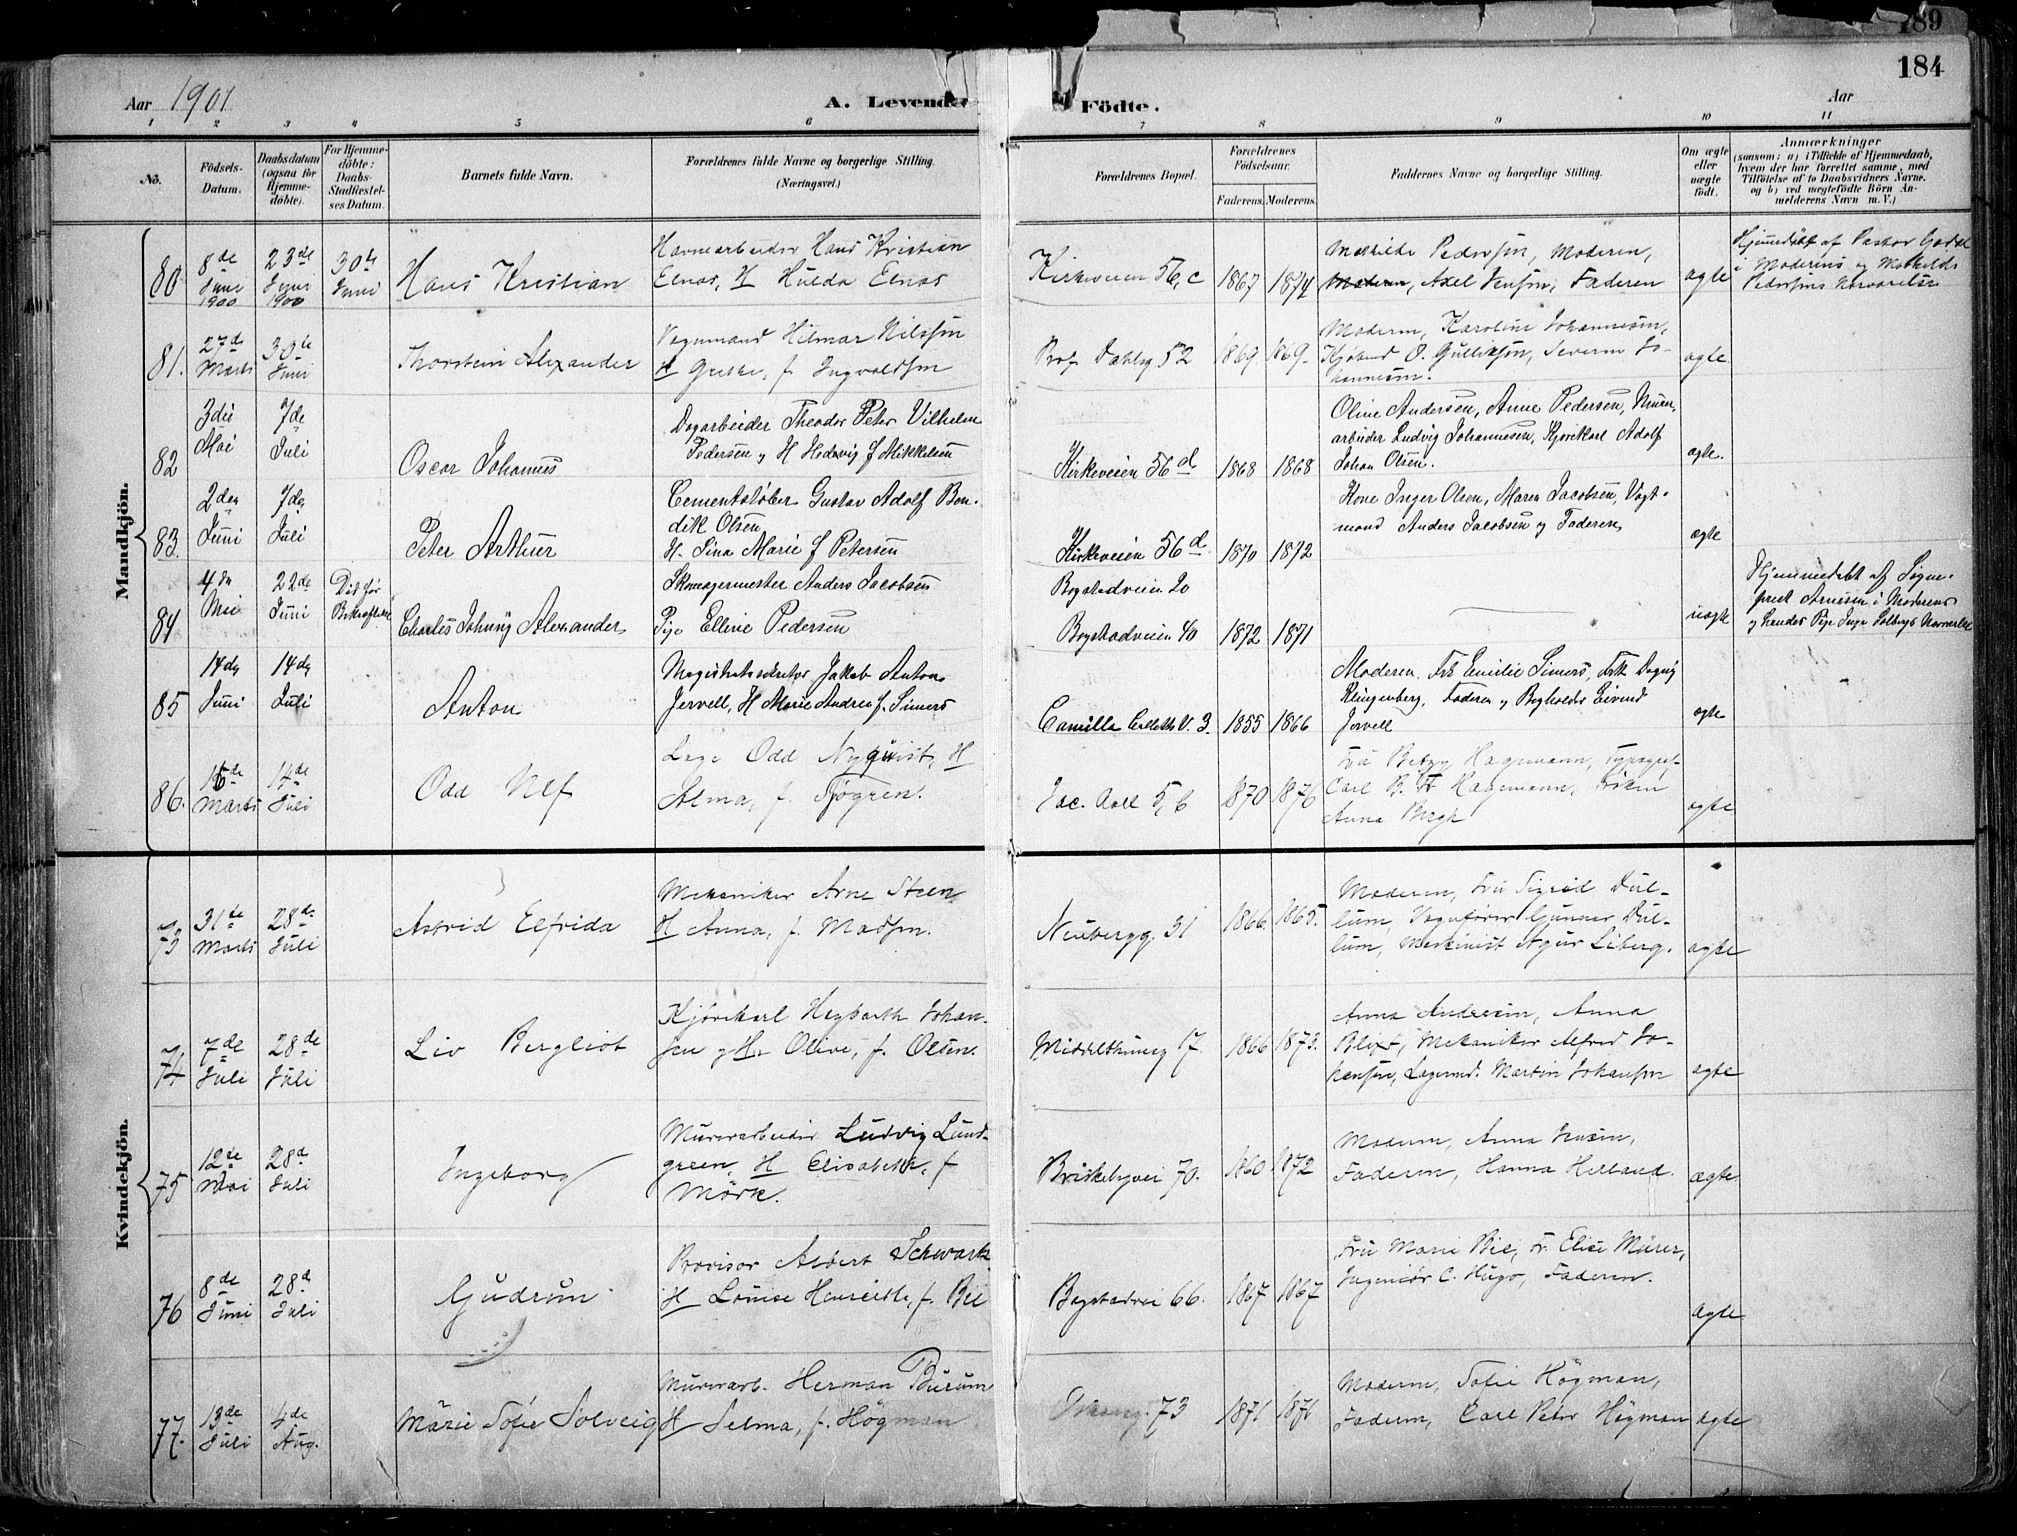 189
184
Aar 1901
A. Levende Födte.
Aar
1 2 3 4 5 6 7 8 9 10 11
No.
Födsels-
Datum.
Daabsdatum
(ogsaa for
Hjemme-
döbte).
For Hjemme-
döbte:
Daabs-
Stadfæstel-
ses Datum.
Barnets fulde Navn.
Forældrenes fulde Navne og borgerlige Stilling.
(Næringsvei.)
Forældrenes Bopæl.
Forældrenes
Födselsaar.
Faderens. Moderens.
Faddernes Navne og borgerlige Stilling.
Om ægte
eller
uægte
födt.
Anmærkninger
(saasom: a) i Tilfælde af Hjemmedaab,
hvem der har forrettet samme, med
Tilföielse af to Daabsvidners Navne.
og b) ved uægtefödte Börn An-
melderens Navn m. V.)
Mandkjön.
80
8de
Juni
1900
23de
Juni
1900
30te
Juni
Hans Kristian
Havnearbeider Hans Kristian
Elnas, H Hulda Elnas
Kirkeveien 56, c
1867
1874
Mathilde Pedersen, Moderen,
Moderen, Axel Jensen, Faderen
ægte
Hjemmedøbt af Pastor
i Moderens og Mathilde
Pedersens nærværelse
81.
27de
Marts
30te
Juni
Thorstein Alexander
Vognmand Hilmar Nilssen
H f. Ingvaldsen
Prof. Dahlsg. 52
1869.
1869.
Moderen, Karoline Johannesen,
O. Gulliksen, Severin Jo-
hannesen.
ægte
82
3die
Mai
7de
Juli
Oscar Johannes
Dagarbeider Theodor Peter Vilhelm
Pedersen og H Hedvig f Mikkelsen
Kirkeveien 56 d
1868
1868
Oline Andersen, Anne Pedersen, Murer-
arbeider Ludvig Johannesen, Kjørekarl Adolf
Johan Olsen.
ægte.
83.
2den
Juni
7de
Juli
Peter Arthur
Cementstøber Gustav Adolf Ben-
dik Olsen
H. Lina Marie f Petersen
Kirkeveien 56 d
1870
1872
Kone Inger Olsen, Maren Jacobsen, Vogt-
mand Anders Jacobsen og Faderen
ægte
84
4de
Mai
22de
Juni
Død før
Bekræftelse
Charles Johnny Alexander
Skomagermester Anders Jacobsen
Pige Elline Pedersen
Bogstadveien 20
Bogstadveien 40
1872
1871
uægte
Hjemmedøbt af Sogne-
prest Arnesen i Moderens
og Pige Inga Solbergs Nærværelse
85
14de
Juni
14de
Juli
Anton
Magistratssekretær Jakob Anton
Jervell, H Marie Andrea f. Simers
Camilla Colletts V. 3.
1855
1866
Moderen, Frk Emilie Simers, Frk Dagny
Klingenberg, Faderen og Bogholder Eivind
Jervell
ægte
86.
15de
Marts
14de
Juli
Odd Ulf
Læge Odd Nyquist, H
Alma, f. Sjögren.
Jac. Aall 5, b
1870
1876
Fru Betzy Hagemann, Typograf
Carl B. Fr Hagemann, Frøken
Anna Bergh
ægte
Kvindekjön.
73
31te
Marts
28de
Juli
Astrid Elfrida
Mekaniker Arne Steen
H Anna, f. Madsen.
Neubergg. 31
1866.
1865.
Moderen, Fru Sigrid Dul-
lum, Vognfører Gunnar Dul-
lum, Maskinist Liberg.
ægte
74
7de
Juli
28de
Juli
Liv Bergliot
Kjørekarl Hagbarth Johan-
sen og H. Olive, f. Olsen.
Middelthunsg 17
1866
1873.
Anna Andersen, Anna
Blixt, Mekaniker Alfred Jo-
hansen, Lagermd. Martin Johansen
ægte
75
12te
Mai
28de
Juli
Ingeborg
Murerarbeider Ludvig Lund-
green, H Elisabeth, f
Mörk.
Briskebyvei 70.
1860
1872
Moderen, Anna Jensen,
Faderen, Hanna Helland.
ægte
76
8de
Juni
28de
Juli
Gudrun
Provisor Albert Schwartz
H Louise Henriette, f. Bie
Bogstadvei 66.
1867
1867
Fru Marie Bie, Fr. Elise Mürer,
Ingeniør C. Hugo, Faderen.
ægte
77.
13de
Juli
4de
Aug.
Marie Sofie Solveig
Murerarb. Herman Burum
H Selma, f. Högman
73
1871.
1871
Moderen, Sofie Högman,
Faderen, Carl Peter Högman
ægte